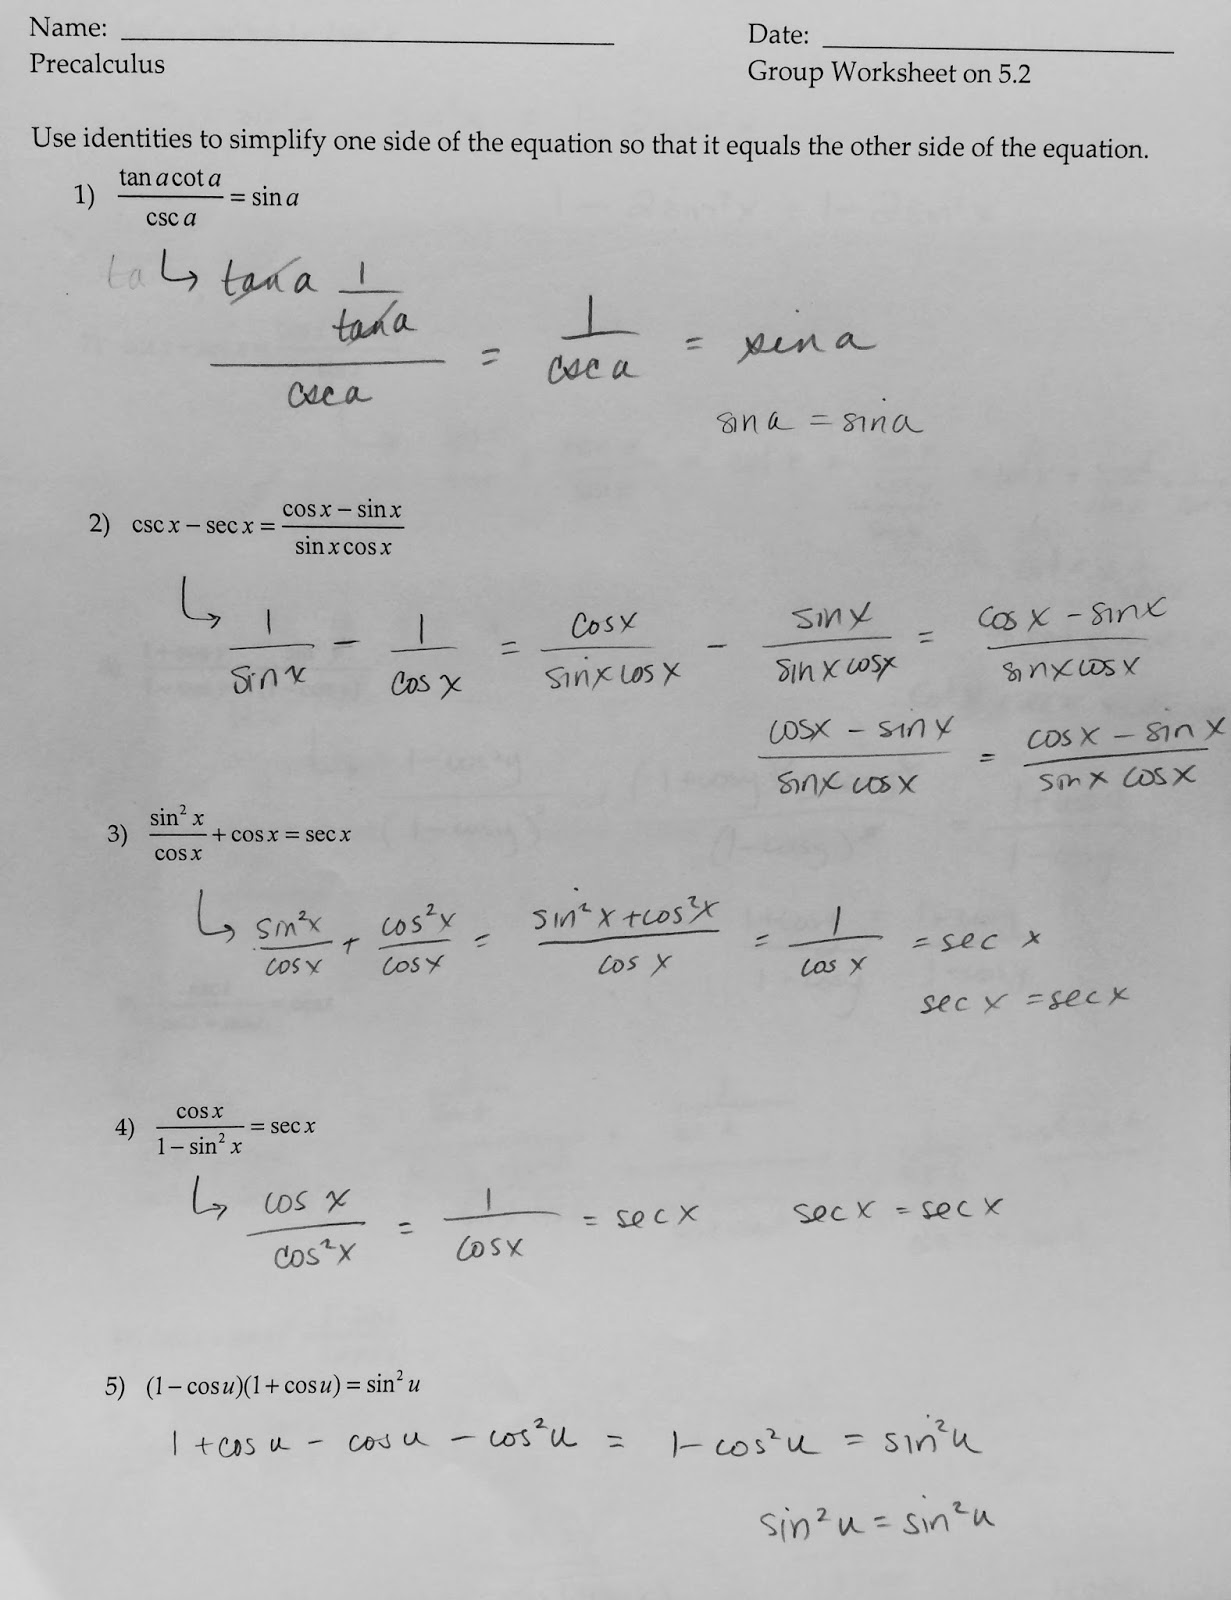 Name: ____________ Date: ____________
Precalculus Group Worksheet on 5.2
Use identities to simplify one side of the equation so that it equals the other side of the equation.
1) (tan a cot a)/(csc a) = sin a
ta ↳ (tan a 1/(tan a))/(csc a) = 1/(csc a) = sin a
sin a = sin a
2) csc x − sec x = (cos x − sin x)/(sin x cos x)
↳ 1/(sin x) − 1/(cos x) = (cos x)/(sin x cos x) − (sin x)/(sin x cos x) = (cos x − sin x)/(sin x cos x)
(cos x − sin x)/(sin x cos x) = (cos x − sin x)/(sin x cos x)
3) (sin² x)/(cos x) + cos x = sec x
↳ (sin² x)/(cos x) + (cos² x)/(cos x) = (sin² x + cos² x)/(cos x) = 1/(cos x) = sec x
sec x = sec x
4) (cos x)/(1 − sin² x) = sec x
↳ (cos x)/(cos² x) = 1/(cos x) = sec x sec x = sec x
5) (1 − cos u)(1 + cos u) = sin² u
1 + cos u − cos u − cos² u = 1 − cos² u = sin² u
sin² u = sin² u